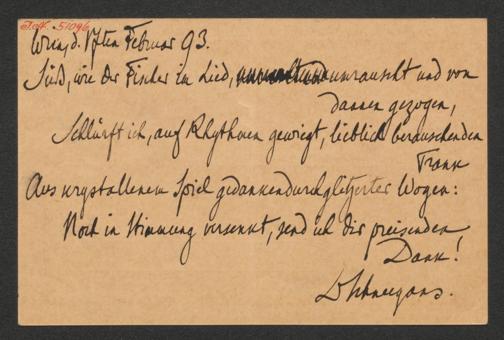 51096
Wien, d. 17ten Februar 93.
Süß, wie der Fischer im Lied, umrauscht und von
dannen gezogen,
Schlürft ich, auf Rhythmen gewiegt, lieblich berauschenden
Trank
Aus krystallenem Spiel gedankendurchglitzerter Wogen:
Noch in Stimmung versenkt, send ich dir preisenden
Dank!